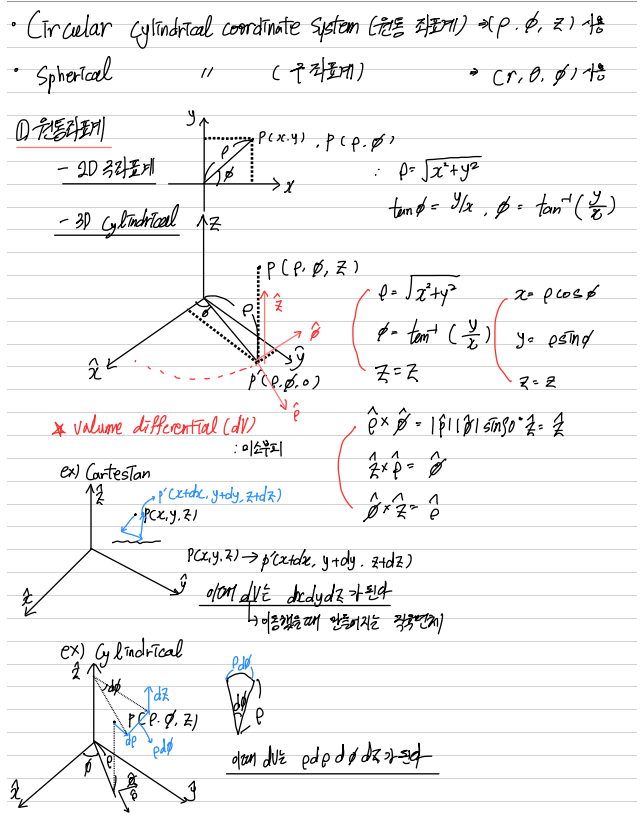 • Circular Cylindrical coordinate System (원통 좌표계) ⇒ (ρ, φ, z) 사용
• Spherical 〃 (구좌표계) ⇒ (r, θ, φ) 사용
① 원통좌표계
y
P(x,y), P(ρ,φ)
ρ
φ
x
- 2D 극좌표계
∴ ρ=√x²+y²
tanφ = y/x, φ = tan⁻¹(y/x)
- 3D Cylindrical
z
P(ρ, φ, z)
ρ
φ
ẑ
φ̂
x̂
ŷ
P'(ρ,φ,0)
ρ̂
ρ=√x²+y²
φ=tan⁻¹(y/x)
z=z
x=ρcosφ
y=ρsinφ
z=z
★ Volume differential (dV)
: 미소부피
ρ̂×φ̂ = |ρ̂||φ̂|sin90° ẑ = ẑ
ẑ×ρ̂ = φ̂
φ̂×ẑ = ρ̂
ex) Cartesian
ẑ
P'(x+dx, y+dy, z+dz)
P(x,y,z)
x̂
ŷ
P(x,y,z) → P'(x+dx, y+dy, z+dz)
이때 dV는 dxdydz가 된다
↳ 이동했을때 만들어지는 직육면체
ex) Cylindrical
ẑ
dφ
dz
P(ρ, φ, z)
dρ
ρdφ
φ
ρ
x̂
ŷ
ρdφ
dφ
ρ
이때 dV는 ρdρdφdz가 된다